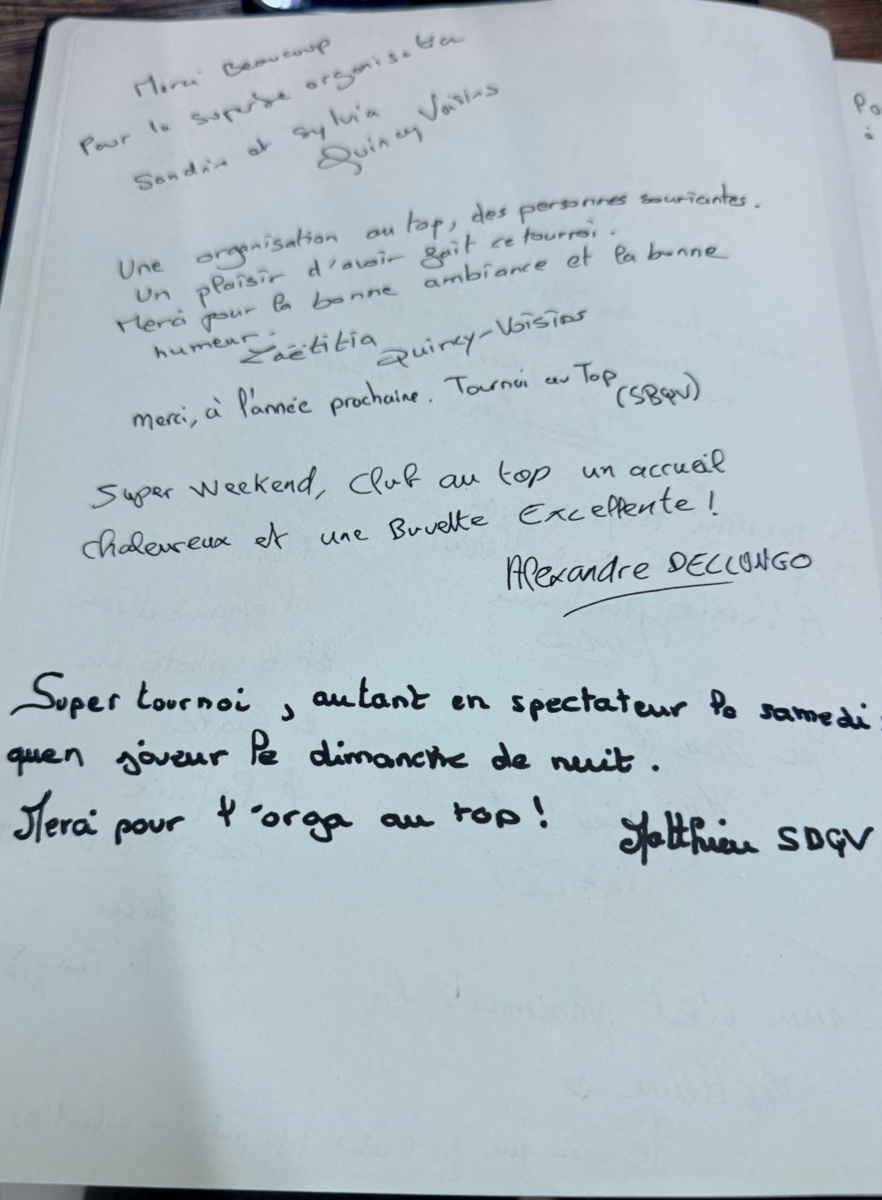 Merci Beaucoup
Pour la superbe organisation
Sandrin et Sylvia
Quincy Voisins
Une organisation au top, des personnes souriantes.
Un plaisir d'avoir fait ce tournoi.
Merci pour la bonne ambiance et la bonne
humeur.
Laëtitia Quincy-Voisins
merci, à l'année prochaine. Tournoi au Top
(SBQV)
Super Weekend, Club au top un accueil
chaleureux et une Buvette Excellente !
Alexandre DELLONGO
Super tournoi, autant en spectateur le samedi
quen joueur le dimanche de nuit.
Merci pour l'orga au top !
Matthieu SDQV
Po
à